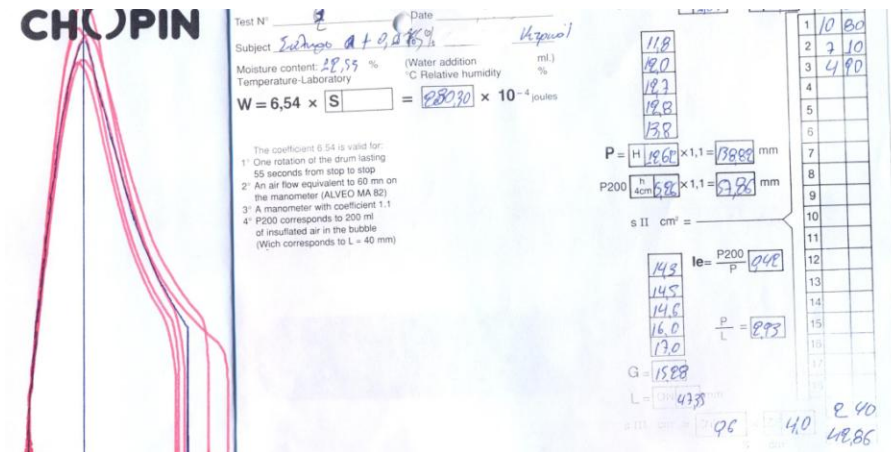 CHOPIN
Test N°
Date
Subject
Moisture content: % (Water addition ml.)
Temperature-Laboratory °C Relative humidity %
W = 6,54 × S = 280,30 × 10⁻⁴ joules
The coefficient 6.54 is valid for:
1° One rotation of the drum lasting
55 seconds from stop to stop
2° An air flow equivalent to 60 mn on
the manometer (ALVEO MA 82)
3° A manometer with coefficient 1.1
4° P200 corresponds to 200 ml
of insuflated air in the bubble
(Wich corresponds to L = 40 mm)
11,8
12,0
12,7
12,8
13,8
P = H 12,62 ×1,1 = 138,82 mm
P200 h 4cm 5,26 ×1,1 = 57,86 mm
s II cm² =
Ie= P200 P 0,42
14,3
14,5
14,6
16,0
17,0
P L = 2,93
G = 15,28
L = 47,33
0,6 4,0
1 10 80
2 7 10
3 4 90
4
5
6
7
8
9
10
11
12
13
14
15
16
17
2 40
42,86